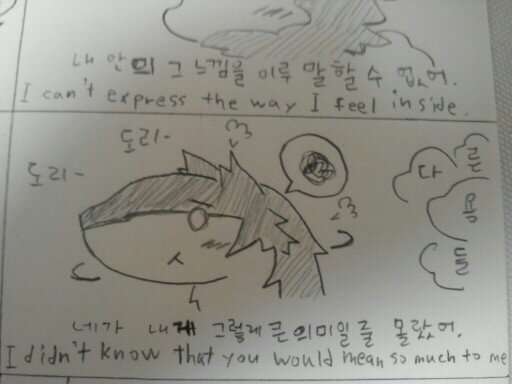 내 안의 그 느낌을 이루 말할 수 없어.
I can't express the way I feel inside.
도리-
도리-
다른
용
들
네가 내게 그렇게 큰 의미일 줄 몰랐어.
I didn't know that you would mean so much to me